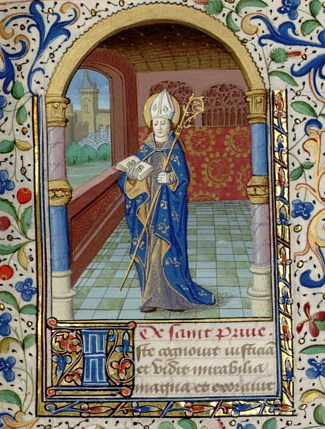 De saint Priue
Iste cognouit iusticiã
et vidit mirabilia
magna et exorauit